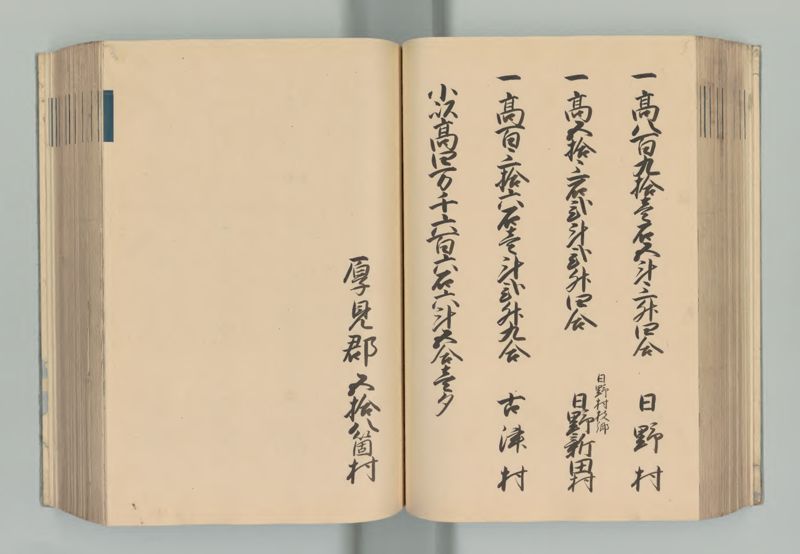 一高八百九拾壱石五斗三升四合 日野村
一高五拾三石弐斗弐升四合 日野村枝郷 日野新田村
一高百三拾六石壱斗弐升九合 古津村
小以高四万千六百六石六斗五合壱夕
厚見郡 五拾八箇村